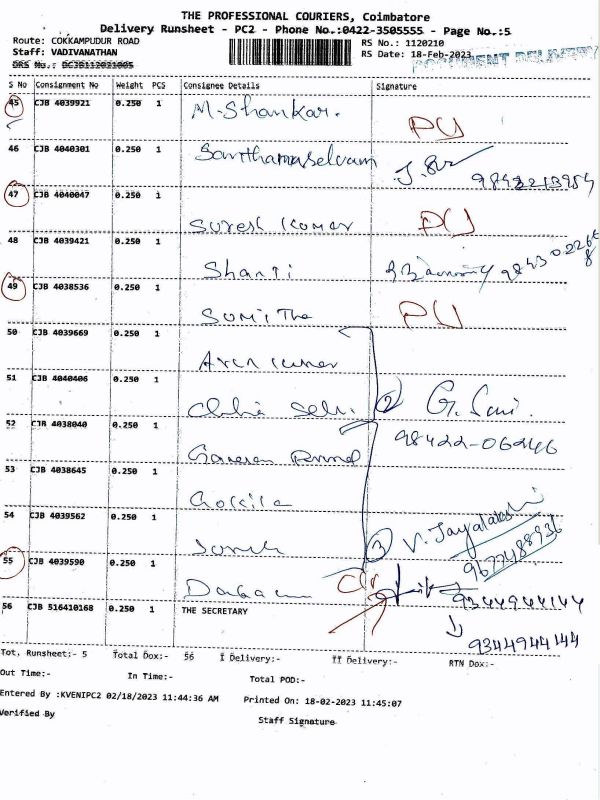 THE PROFESSIONAL COURIERS, Coimbatore
Delivery Runsheet - PC2 - Phone No.:0422-3505555 - Page No.:5
Route: COKKAMPUDUR ROAD
RS No.: 1120210
Staff: VADIVANATHAN
RS Date: 18-Feb-2023
DRS No.: DCJB112021005
DOCUMENT DELIVERY
S No Consignment No Weight PCS Consignee Details Signature
45 CJB 4039921 0.250 1 M. Shankar. PU
46 CJB 4040301 0.250 1
47 CJB 4040047 0.250 1 Suresh Kumar PU
48 CJB 4039421 0.250 1 Shanti
49 CJB 4038536 0.250 1 Sumitha PU
50 CJB 4039669 0.250 1 Arun Kumar
51 CJB 4040406 0.250 1 2 G.
52 CJB 4038040 0.250 1 98422-06246
53 CJB 4038645 0.250 1 Gokkila
54 CJB 4039562 0.250 1 3 V. Jayalakshi
9677488936
55 CJB 4039590 0.250 1
9344944144
56 CJB 516410168 0.250 1 THE SECRETARY
9344944144
Tot, Runsheet:- 5 Total Dox:- 56 I Delivery:- II Delivery:- RTN Dox:-
Out Time:- In Time:- Total POD:-
Entered By :KVENIPC2 02/18/2023 11:44:36 AM Printed On: 18-02-2023 11:45:07
Verified By
Staff Signature